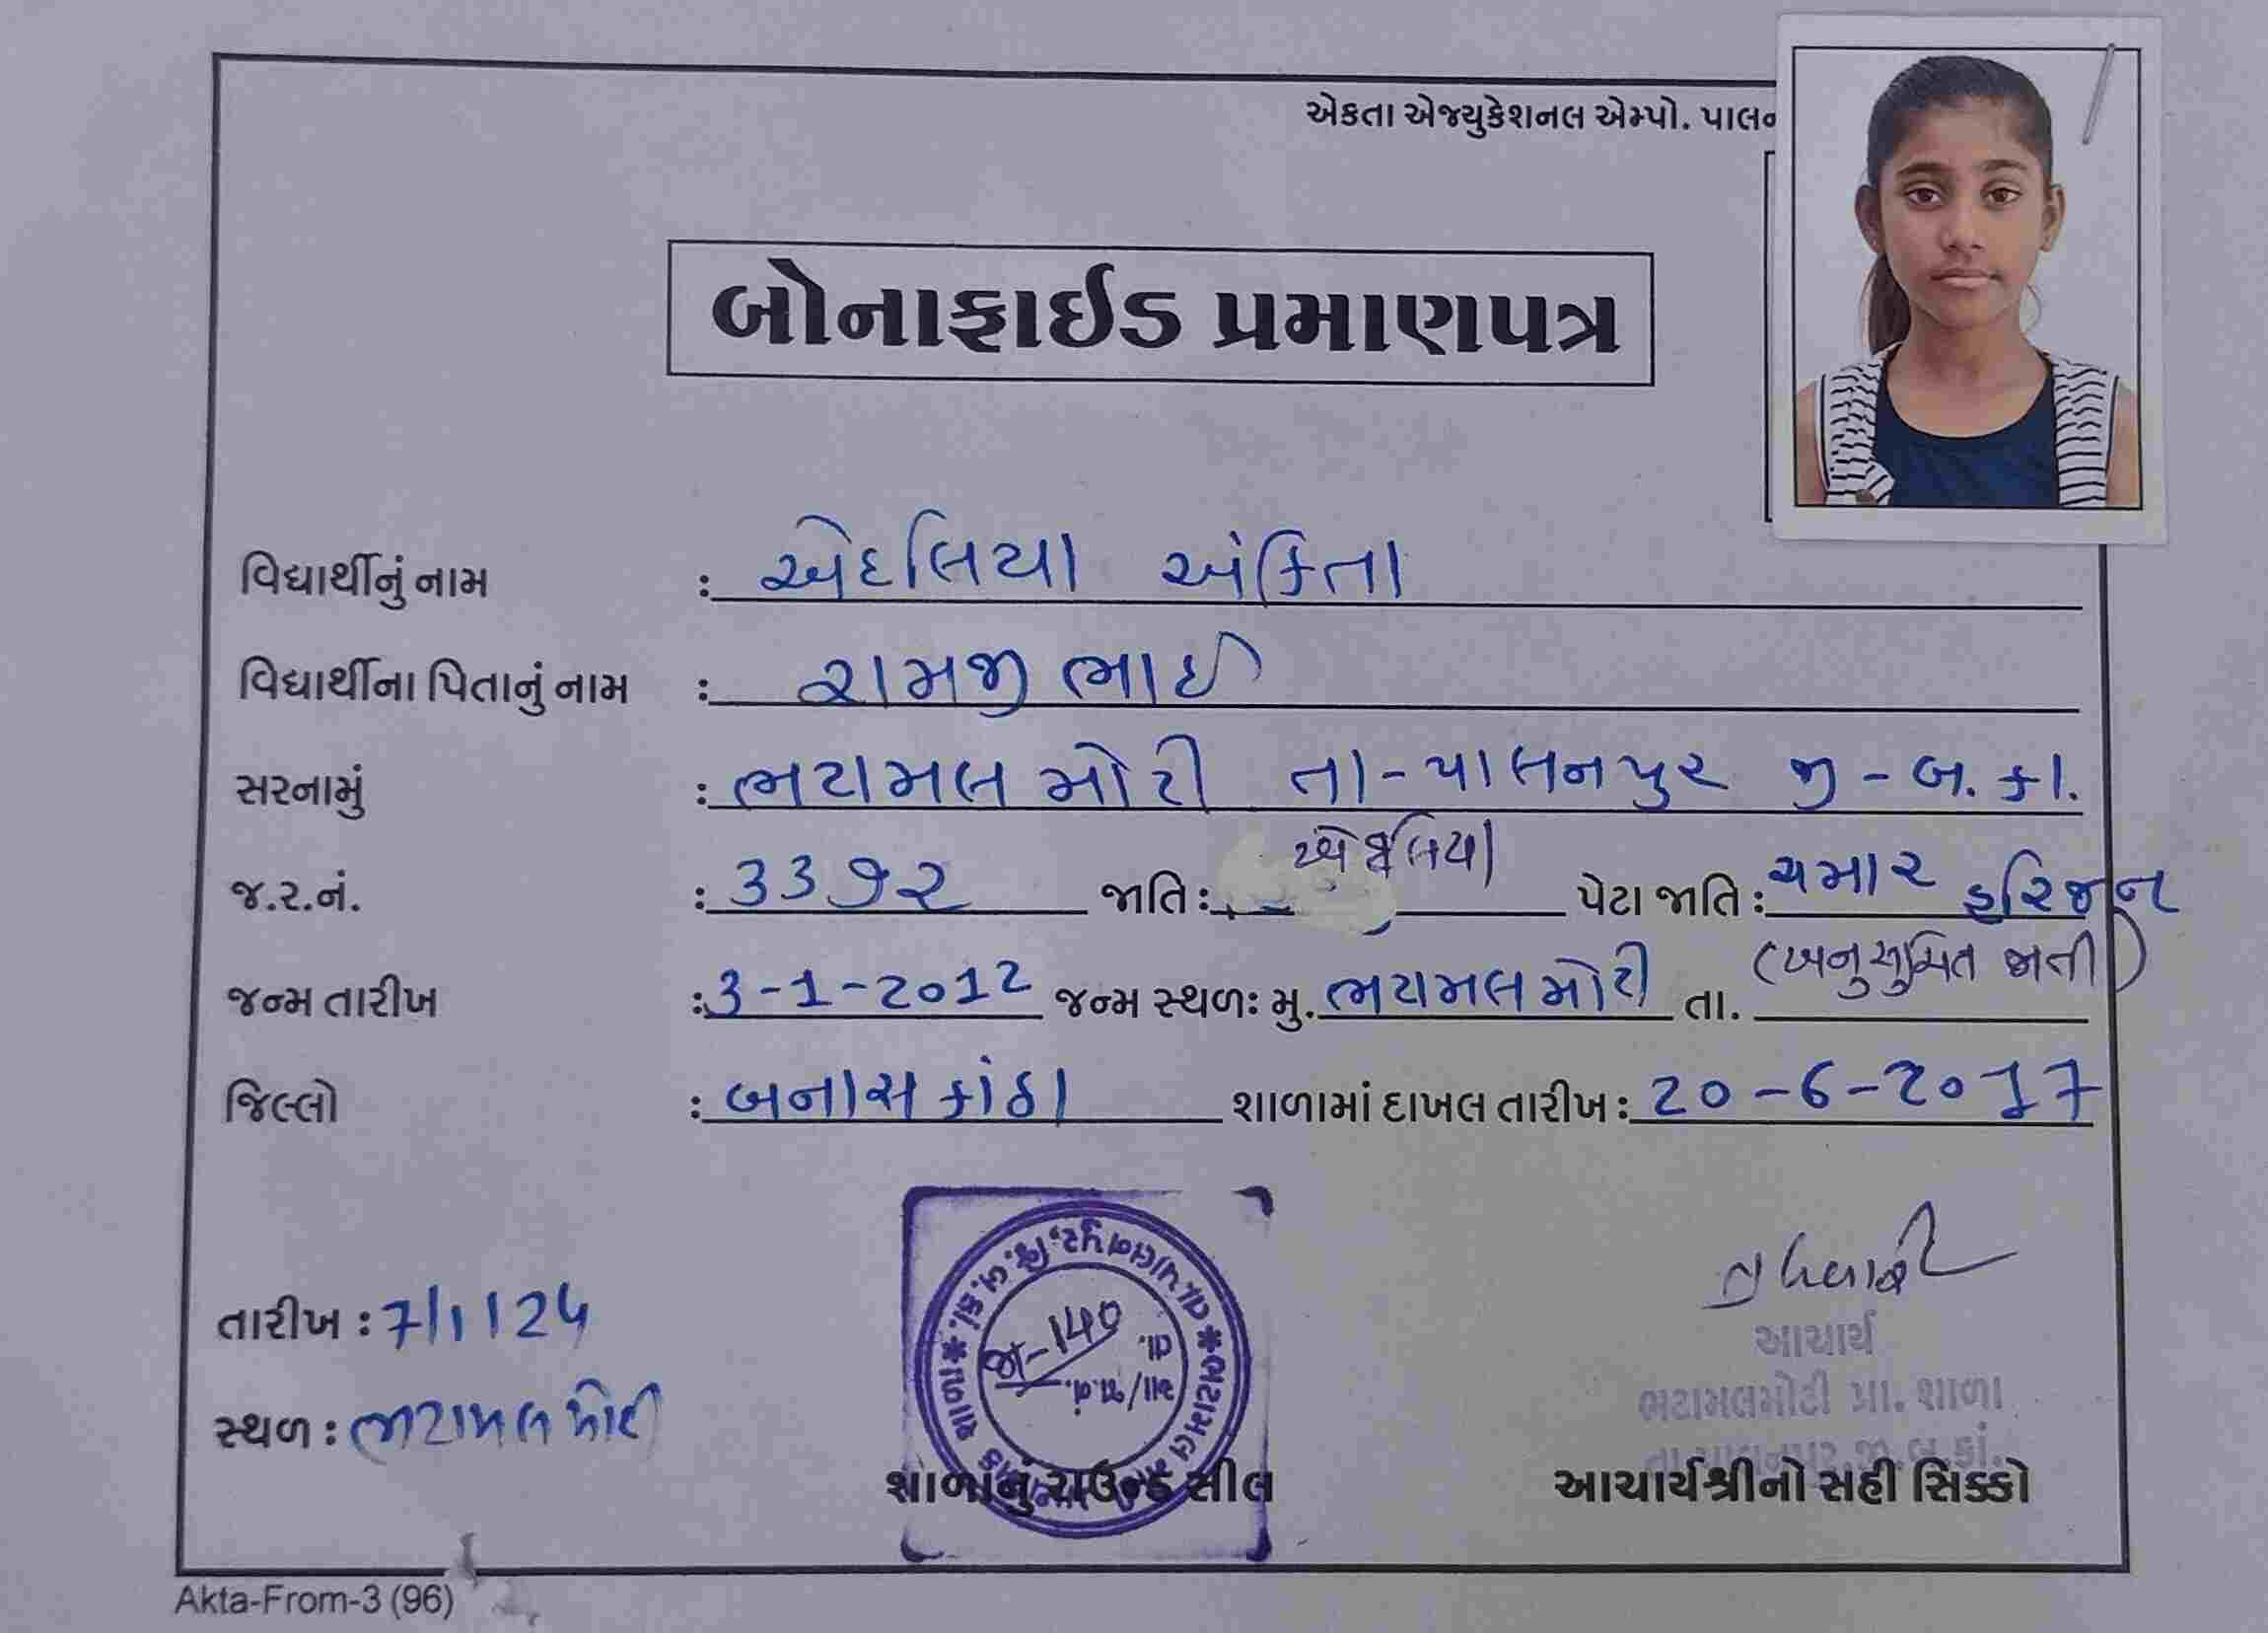 એકતા એજ્યુકેશનલ એમ્પો. પાલન
બોનાફાઈડ પ્રમાણપત્ર
વિદ્યાર્થીનું નામ : એદલિયા અંકિતા
વિદ્યાર્થીના પિતાનું નામ : રામજીભાઈ
સરનામું : ભટામલ મોટી તા-પાલનપુર જી-બ.કા.
જ.ર.નં. : ૩૩૭૨ જાતિ : પેટા જાતિ : ચમાર હરિજન
(અનુસુચિત જાતી)
જન્મ તારીખ : 3-1-2012 જન્મ સ્થળ: મુ. ભટામલ મોટી તા.
જિલ્લો : બનાસકાંઠા શાળામાં દાખલ તારીખ : 20-6-2017
તારીખ : 7/1/24
સ્થળ : ભટામલ મોટી
આચાર્ય
ભટામલમોટી પ્રા. શાળા
તા.પાલનપુર.જી.બ.કાં.
શાળાનું રાઉન્ડ સીલ
આચાર્યશ્રીનો સહી સિક્કો
Akta-From-3 (96)